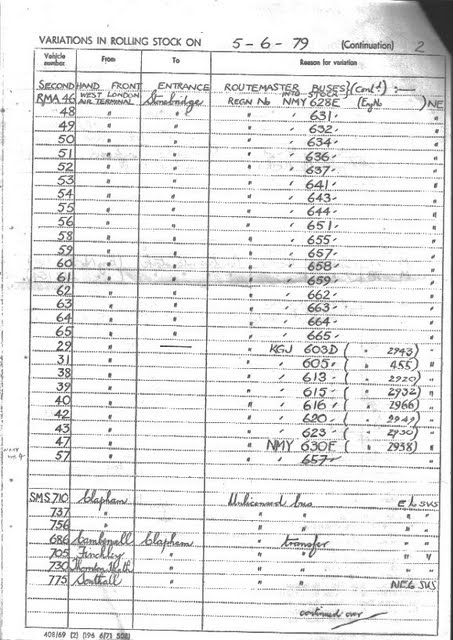 VARIATIONS IN ROLLING STOCK ON 5-6-79 (Continuation) 2
Vehicle number From To Reason for variation
SECOND HAND FRONT ENTRANCE ROUTEMASTER BUSES (Contd) :—
RMA 46 WEST LONDON AIR TERMINAL Stonebridge REGN No INTO STOCK NMY 628E (Eng No ) NE
48 " " " " 631 "
49 " " " " 632 "
50 " " " " 634 "
51 " " " " 636 "
52 " " " " 637 "
53 " " " " 641 "
54 " " " " 643 "
55 " " " " 644 "
56 " " " " 651 "
58 " " " " 655 "
59 " " " " 657 "
60 " " " " 658 "
61 " " " " 659 "
62 " " " " 662 "
63 " " " " 663 "
64 " " " " 664 "
65 " " " " 665 "
29 " — " KGJ 603D ( " 2943) "
31 " " " 605 ( " 455) "
38 " " " 613 ( " 2920) "
39 " " " 615 ( " 2932) "
40 " " " 616 ( " 2966) "
42 " " " 620 ( " 2949) "
43 " " " 623 ( " 2930) "
47 " " NMY 630E ( " 2938) "
57 " " " 657
SMS 710 Clapham Unlicensed bus EL SUS
737 " " " " "
756 " " " " "
686 Camberwell Clapham " transfer " "
705 Finchley " " " " "
730 Thornton Heath " " " " "
775 Southall " " " NEL SUS
continued over
408/69 (2) (196 6/71 50B)